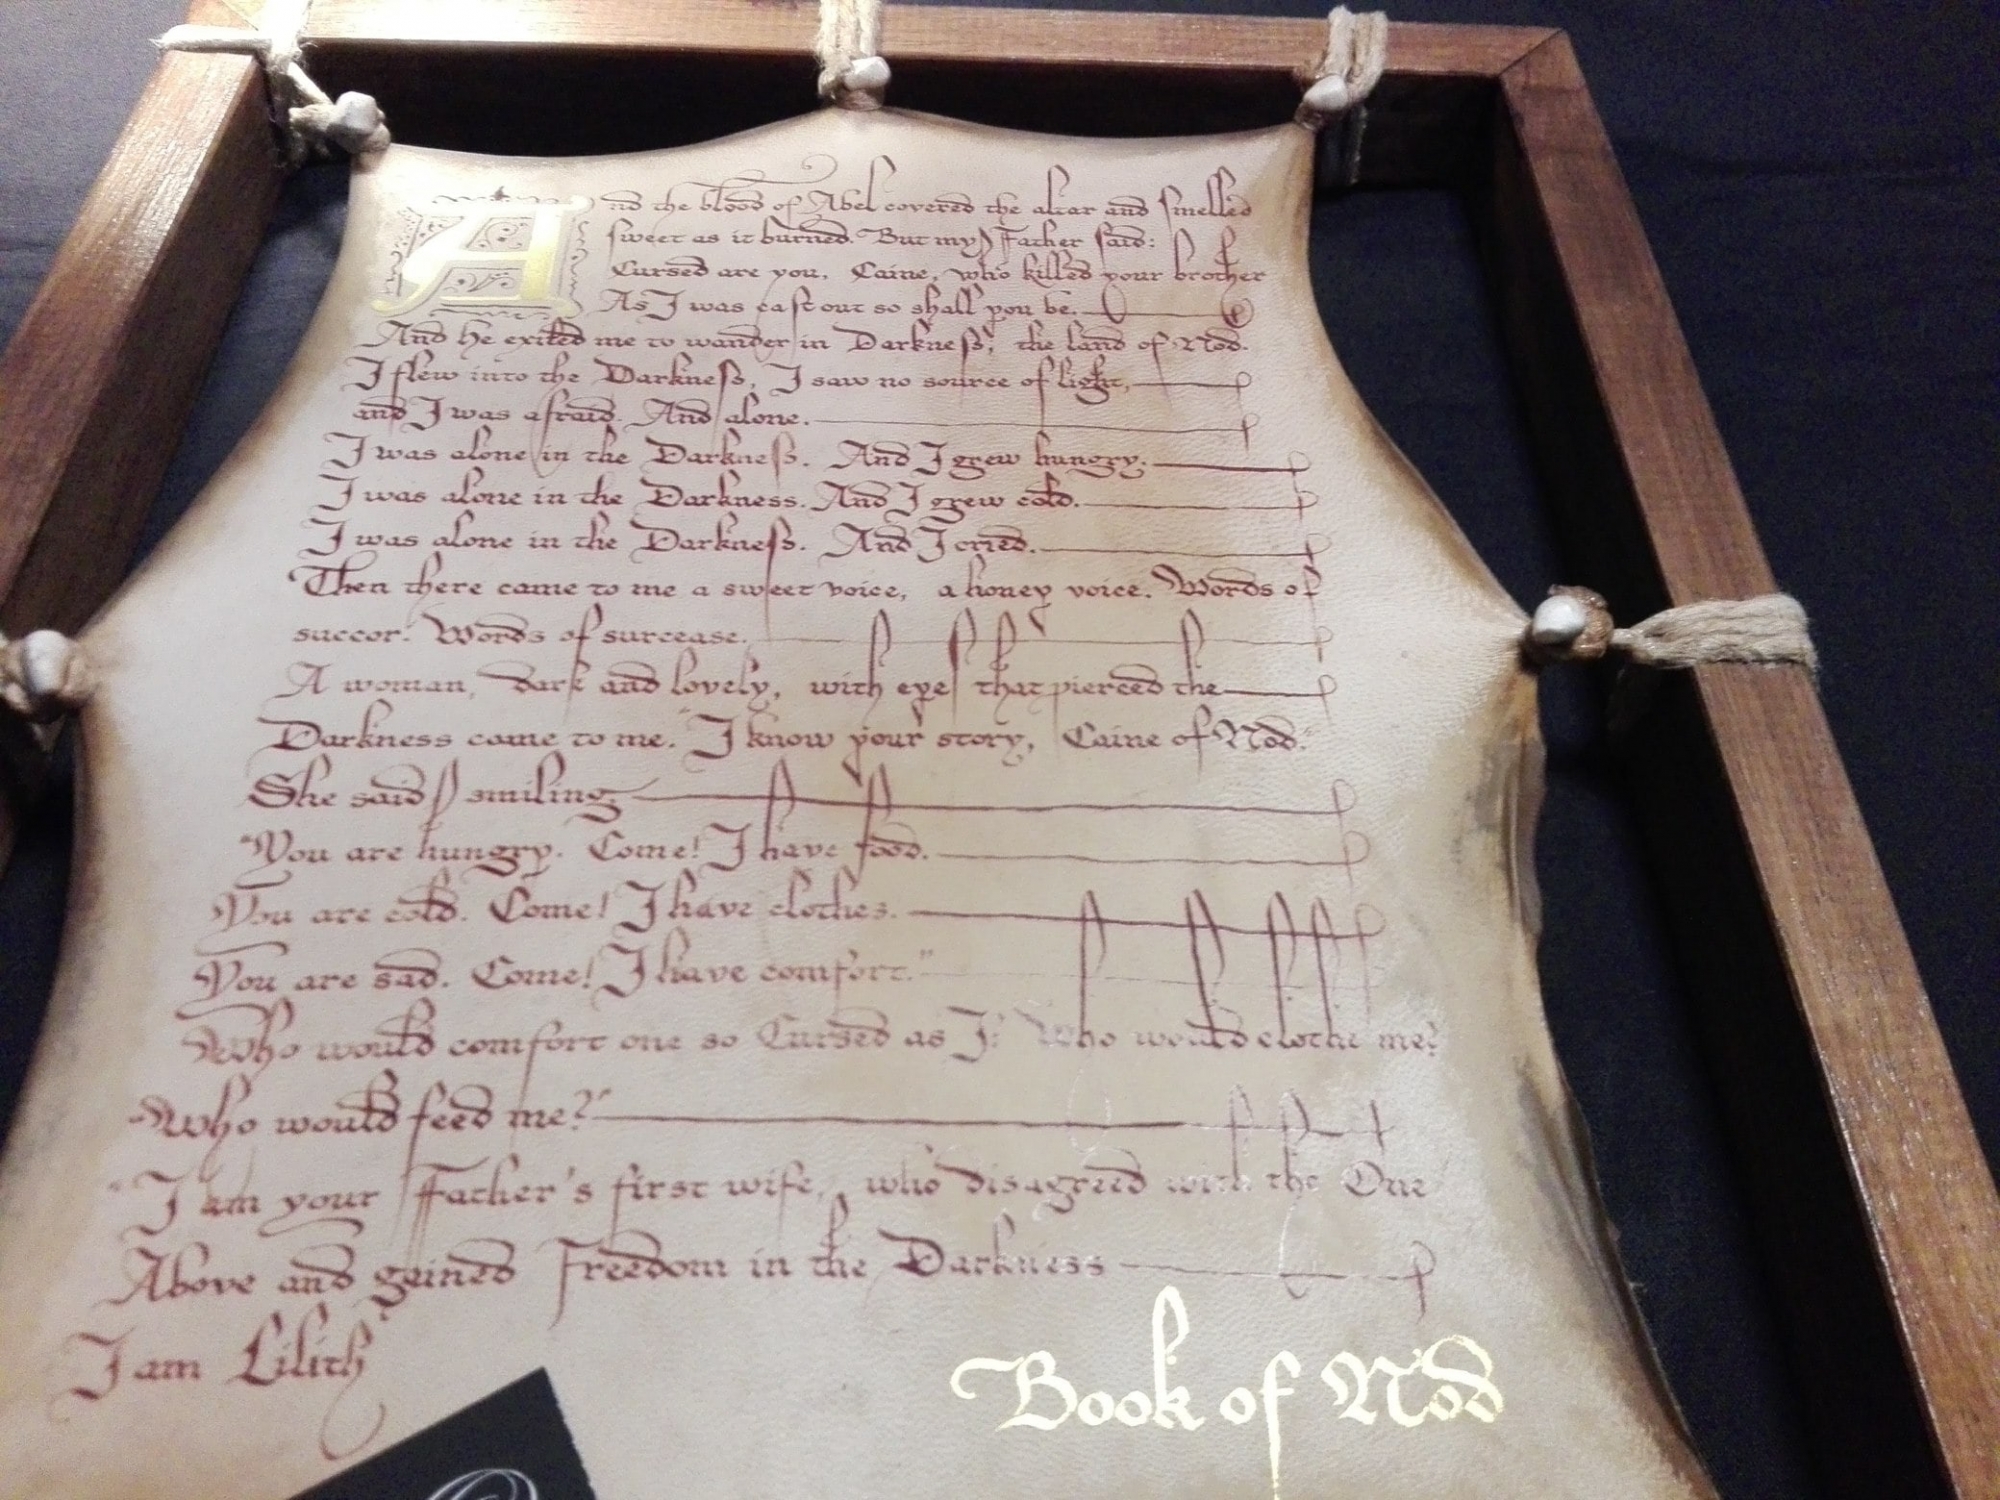 And the blood of Abel covered the altar and smelled
sweet as it burned. But my Father said:
Cursed are you, Caine, who killed your brother
As I was cast out so shall you be.
And he exiled me to wander in Darkness, the land of Nod.
I flew into the Darkness, I saw no source of light,
and I was afraid. And alone.
I was alone in the Darkness. And I grew hungry.
I was alone in the Darkness. And I grew cold.
I was alone in the Darkness. And I cried.
Then there came to me a sweet voice, a honey voice. Words of
succor. Words of surcease.
A woman, dark and lovely, with eyes that pierced the
Darkness came to me. "I know your story, Caine of Nod."
She said, smiling.
"You are hungry. Come! I have food.
You are cold. Come! I have clothes.
You are sad. Come! I have comfort."
Who would comfort one so Cursed as I? Who would clothe me?
Who would feed me?"
"I am your Father's first wife, who disagreed with the One
Above and gained Freedom in the Darkness
I am Lilith"
Book of Nod